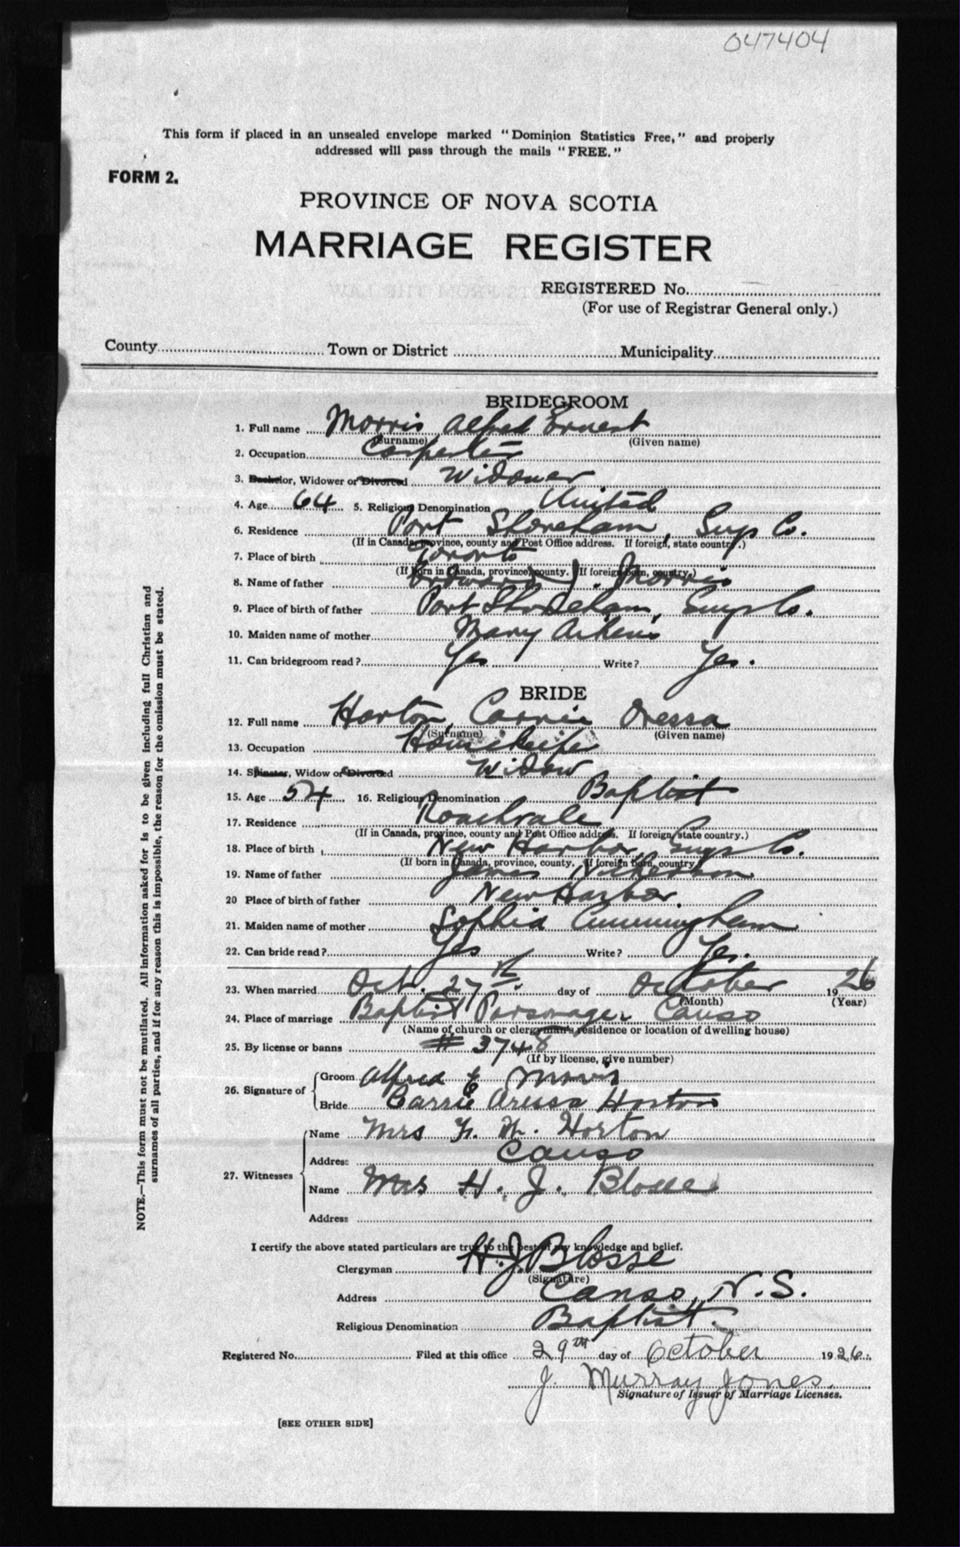 047404
This form if placed in an unsealed envelope marked "Dominion Statistics Free," and properly
addressed will pass through the mails "FREE."
FORM 2.
PROVINCE OF NOVA SCOTIA
MARRIAGE REGISTER
REGISTERED No.
(For use of Registrar General only.)
County Town or District Municipality
BRIDEGROOM
1. Full name Morris Alfred Ernest
(Surname) (Given name)
2. Occupation Carpenter
3. Bachelor, Widower or Divorced Widower
4. Age 64 5. Religious Denomination United
6. Residence Port Shoreham, Guys Co.
(If in Canada, province, county and Post Office address. If foreign, state country.)
7. Place of birth Toronto
(If born in Canada, province, county. If foreign born, country.)
8. Name of father Edward J. Morris
9. Place of birth of father Port Shoreham, Guys Co.
10. Maiden name of mother Mary Aikens
11. Can bridegroom read? Yes Write? Yes.
BRIDE
12. Full name Horton, Carrie Oressa
(Surname) (Given name)
13. Occupation Housekeeper
14. Spinster, Widow or Divorced Widow
15. Age 54 16. Religious Denomination Baptist
17. Residence Roachvale
(If in Canada, province, county and Post Office address. If foreign state country.)
18. Place of birth New Harbor, Guys Co.
(If born in Canada, province, county. If foreign born, country.)
19. Name of father James
20 Place of birth of father New Harbor.
21. Maiden name of mother Sophia Cunningham
22. Can bride read? Yes Write? Yes.
23. When married Oct. 27th. day of October 1926
(Month) (Year)
24. Place of marriage Baptist Parsonage, Canso
(Name of church or clergyman's residence or location of dwelling house)
25. By license or banns # 3748
(If by license, give number)
26. Signature of Groom Alfred E Morris
Bride Carrie Aressa Horton
27. Witnesses Name Mrs Horton
Address Canso
Name Mrs H. J. Blosse
Address
I certify the above stated particulars are true to the best of my knowledge and belief.
Clergyman H. J. Blosse
(Signature)
Address Canso, N.S.
Religious Denomination Baptist.
Registered No. Filed at this office 29th day of October 1926.
J. Murray Jones.
Signature of Issuer of Marriage Licenses.
[SEE OTHER SIDE]
NOTE.—This form must not be mutilated. All information asked for is to be given including full Christian and
surnames of all parties, and if for any reason this is impossible, the reason for the omission must be stated.